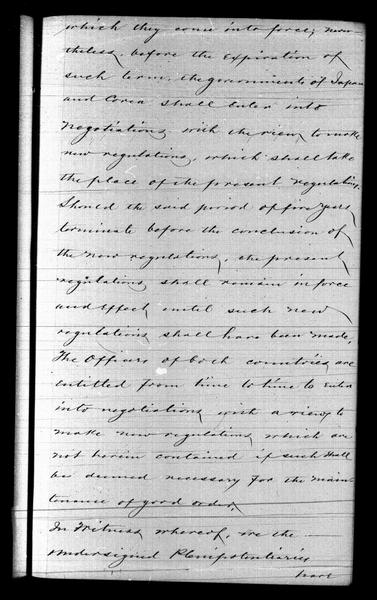 which they come into force; never-
theless, before the expiration of
such term, the governments of Japan
and Corea shall enter into
negotiations with the view to make
new regulations, which shall take
the place of the present regulations.
Should the said period of five years
terminate before the conclusion of
the new regulations, the present
regulations shall remain in force
and effect until such new
regulations shall have been made,
The Officers of both countries are
entitled from time to time to enter
into negotiations with a view to
make new regulations which are
not herein contained if such shall
be deemed necessary for the main-
tenance of good order,
In Witness whereof, we the
undersigned Plenipotentiaries
have